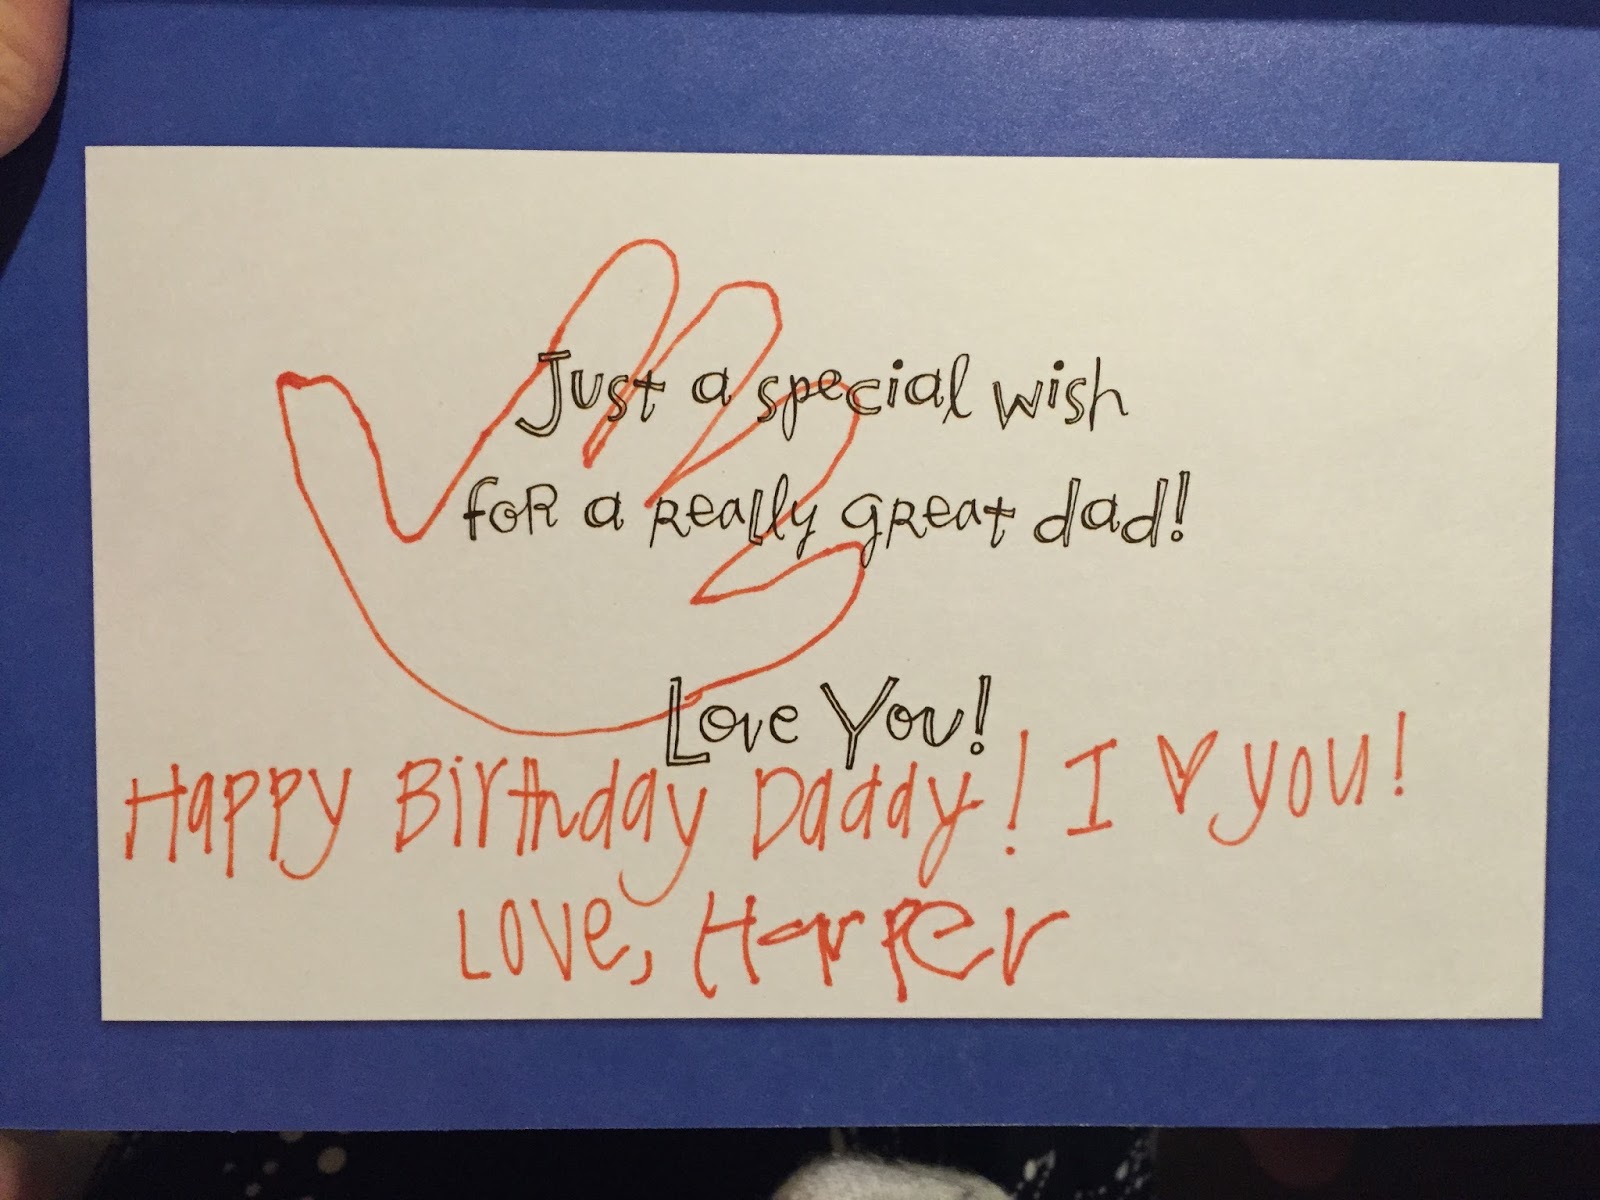 Just a special wish
for a really great dad!
Love You!
Happy Birthday Daddy! I ♥ you!
Love, Harper